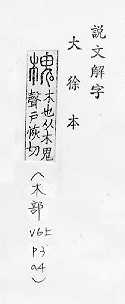 說文解字
大徐本
槐木也从木鬼
聲戶恢切
(木部
V6上
P3
a4)